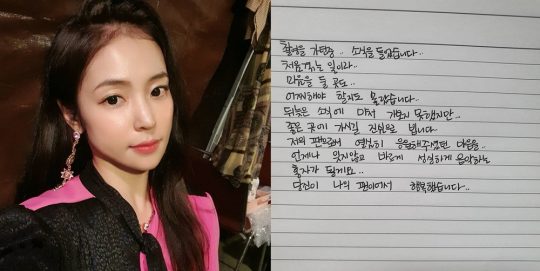 촬영을 가던중.. 소식을 들었습니다..
처음겪는 일이라..
마음을 둘 곳도..
어찌해야 할지도 몰랐습니다..
뒤늦은 소식에 마저 가보지 못했지만..
좋은 곳에 가시길 진심으로 빕니다..
저의 팬으로써 열심히 응원해주셨던 마음을..
언제나 잊지않고 바르게 성실하게 음악하는
홍자가 될게요..
당신이 나의 팬이어서 행복했습니다..